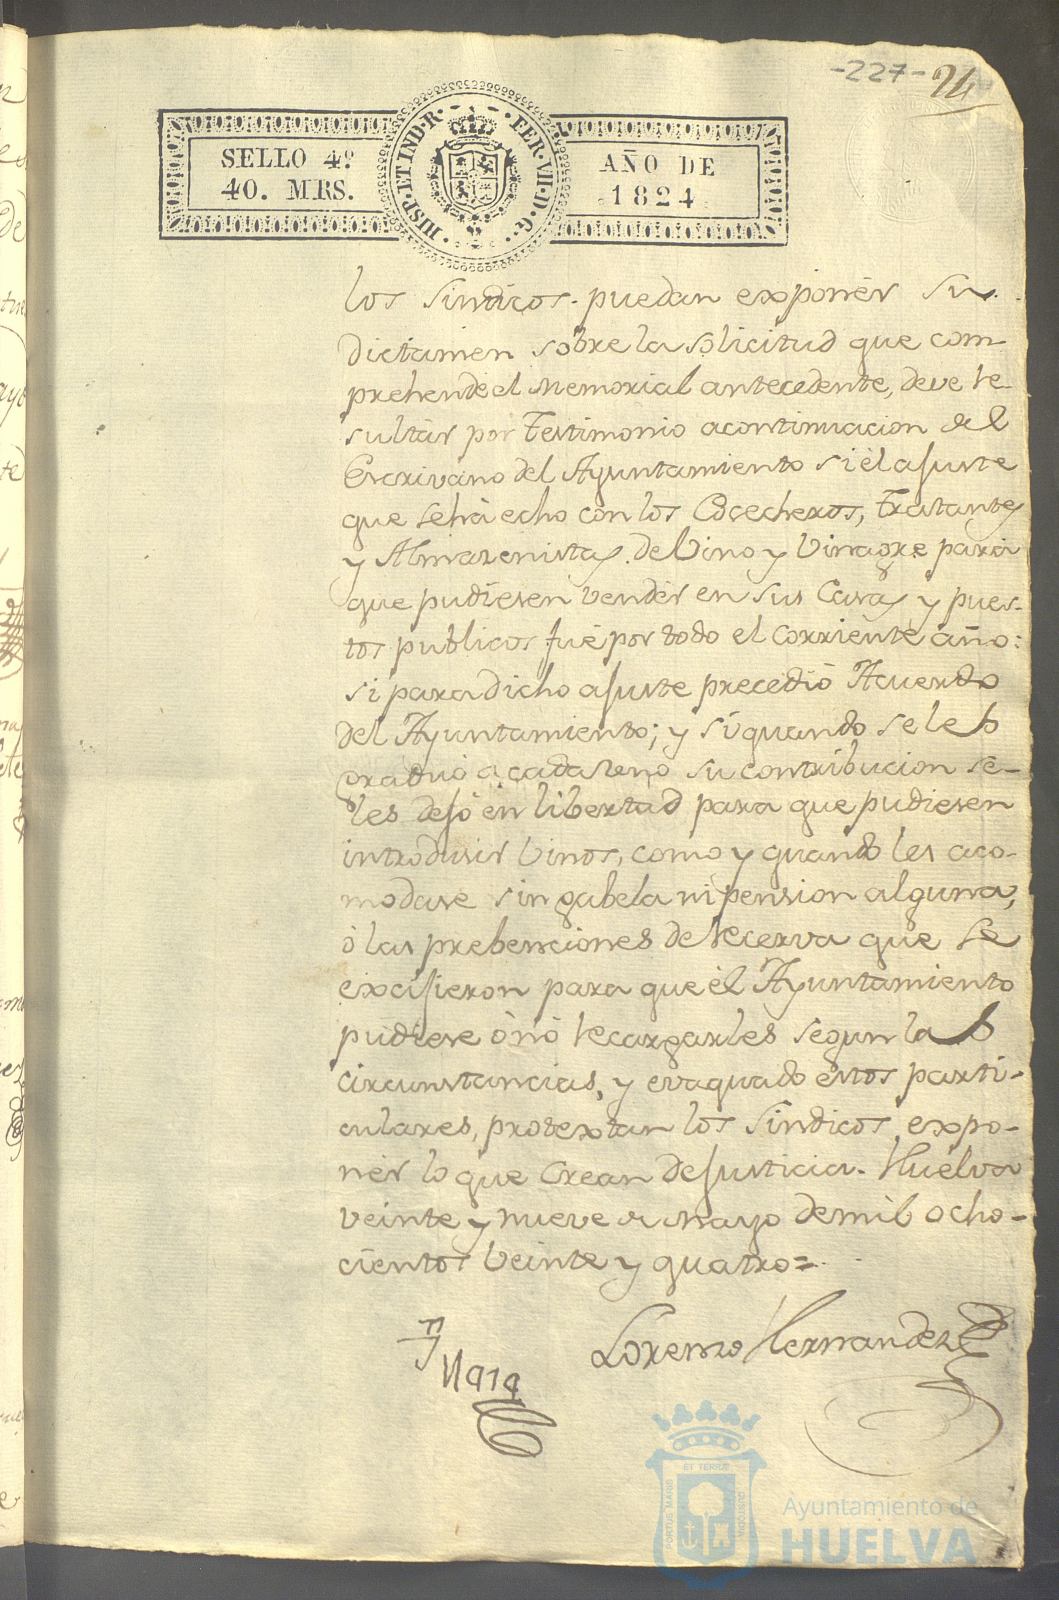 -227- 24
SELLO 4º
40. MRS.
HISP. ET IND. R. FER. VII. D. G.
AÑO DE
1824
los Sindicos puedan exponér su
dictamen sobre la solicitud que com
prehende el Memorial antecedente, deve re-
sultár por Testimonio acontinuacion del
Escrivano del Ayuntamiento si él ajuste
que se há echo con los Cocecheros, Tratantes
y Almazenistas de Vino y Vinagre para
que pudiesen vendér en sus Casas y pues-
tos publicos fué por todo el corriente año:
si para dicho ajuste precedió Acuerdo
del Ayuntamiento; y si quando se les
graduó a cada uno su contribucion se-
les dejó én libertad para que pudiesen
introdusir Vinos, como y quando les aco-
modase sin gabela ni pension alguna,
ó las prebenciones de recerva que se
excijieron para que él Ayuntamiento
pudiese ó nó recargarles segun las
circunstancias, y evaquado éstos parti-
culares, protextan los Sindicos expo-
nér lo que crean de justicia. Huelva
veinte y nueve de mayo de mil ocho-
cientos Veinte y quatro=
Lorenzo Hernandez
PORTUS MARIS ET TERRÆ CUSTODIA
Ayuntamiento de
HUELVA